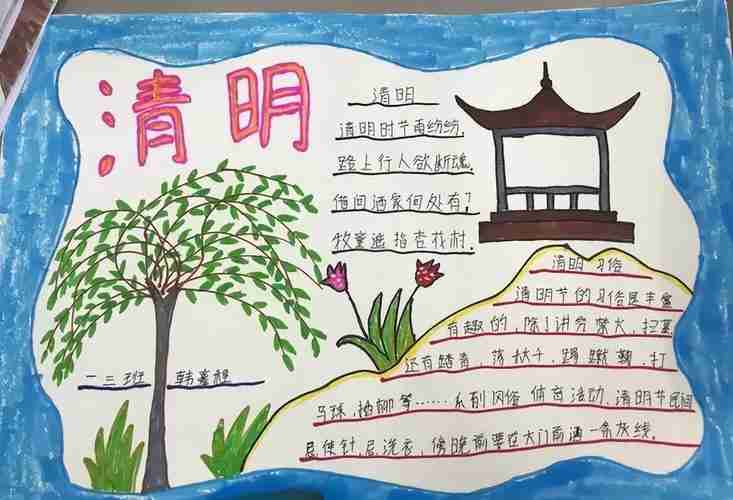 清明
清明
清明时节雨纷纷,
路上行人欲断魂.
借问酒家何处有?
牧童遥指杏花村.
一三班 韩嘉程
清明习俗
清明节的习俗是丰富
有趣的,除了讲究禁火、扫墓
还有踏青、荡秋千、蹋蹴鞠、打
马球、插柳等……系列风俗体育活动.清明节民间
忌使针,忌洗衣,傍晚前要在大门前洒一条灰线.